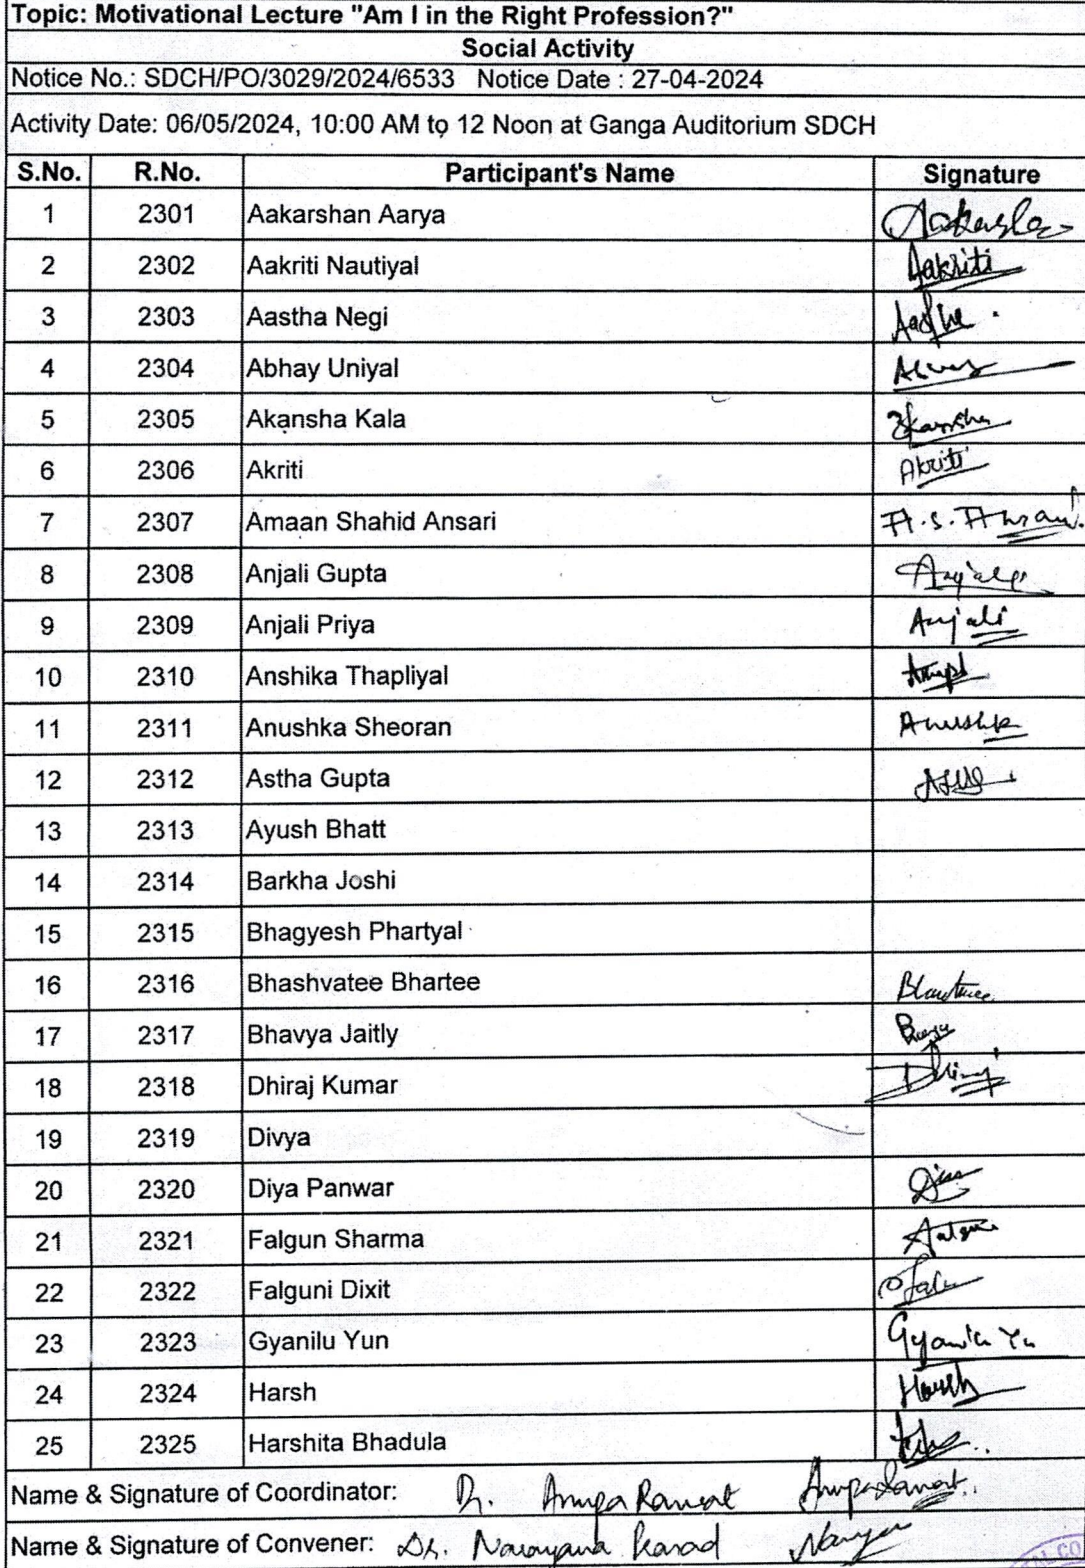 Topic: Motivational Lecture "Am I in the Right Profession?"
Social Activity
Notice No.: SDCH/PO/3029/2024/6533 Notice Date : 27-04-2024
Activity Date: 06/05/2024, 10:00 AM to 12 Noon at Ganga Auditorium SDCH
S.No. R.No. Participant's Name Signature
1 2301 Aakarshan Aarya
2 2302 Aakriti Nautiyal Aakriti
3 2303 Aastha Negi
4 2304 Abhay Uniyal
5 2305 Akansha Kala
6 2306 Akriti Akriti
7 2307 Amaan Shahid Ansari A.S. Ansari
8 2308 Anjali Gupta
9 2309 Anjali Priya Anjali
10 2310 Anshika Thapliyal
11 2311 Anushka Sheoran
12 2312 Astha Gupta
13 2313 Ayush Bhatt
14 2314 Barkha Joshi
15 2315 Bhagyesh Phartyal
16 2316 Bhashvatee Bhartee
17 2317 Bhavya Jaitly
18 2318 Dhiraj Kumar Dhiraj
19 2319 Divya
20 2320 Diya Panwar
21 2321 Falgun Sharma
22 2322 Falguni Dixit
23 2323 Gyanilu Yun
24 2324 Harsh Harsh
25 2325 Harshita Bhadula
Name & Signature of Coordinator: Dr. Rawat
Name & Signature of Convener: Dr. Narayana